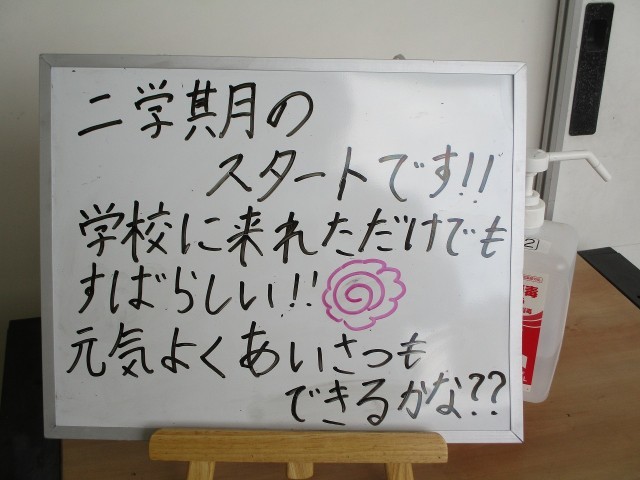 二学期の
スタートです!!
学校に来れただけでも
すばらしい!!
元気よくあいさつも
できるかな??
2